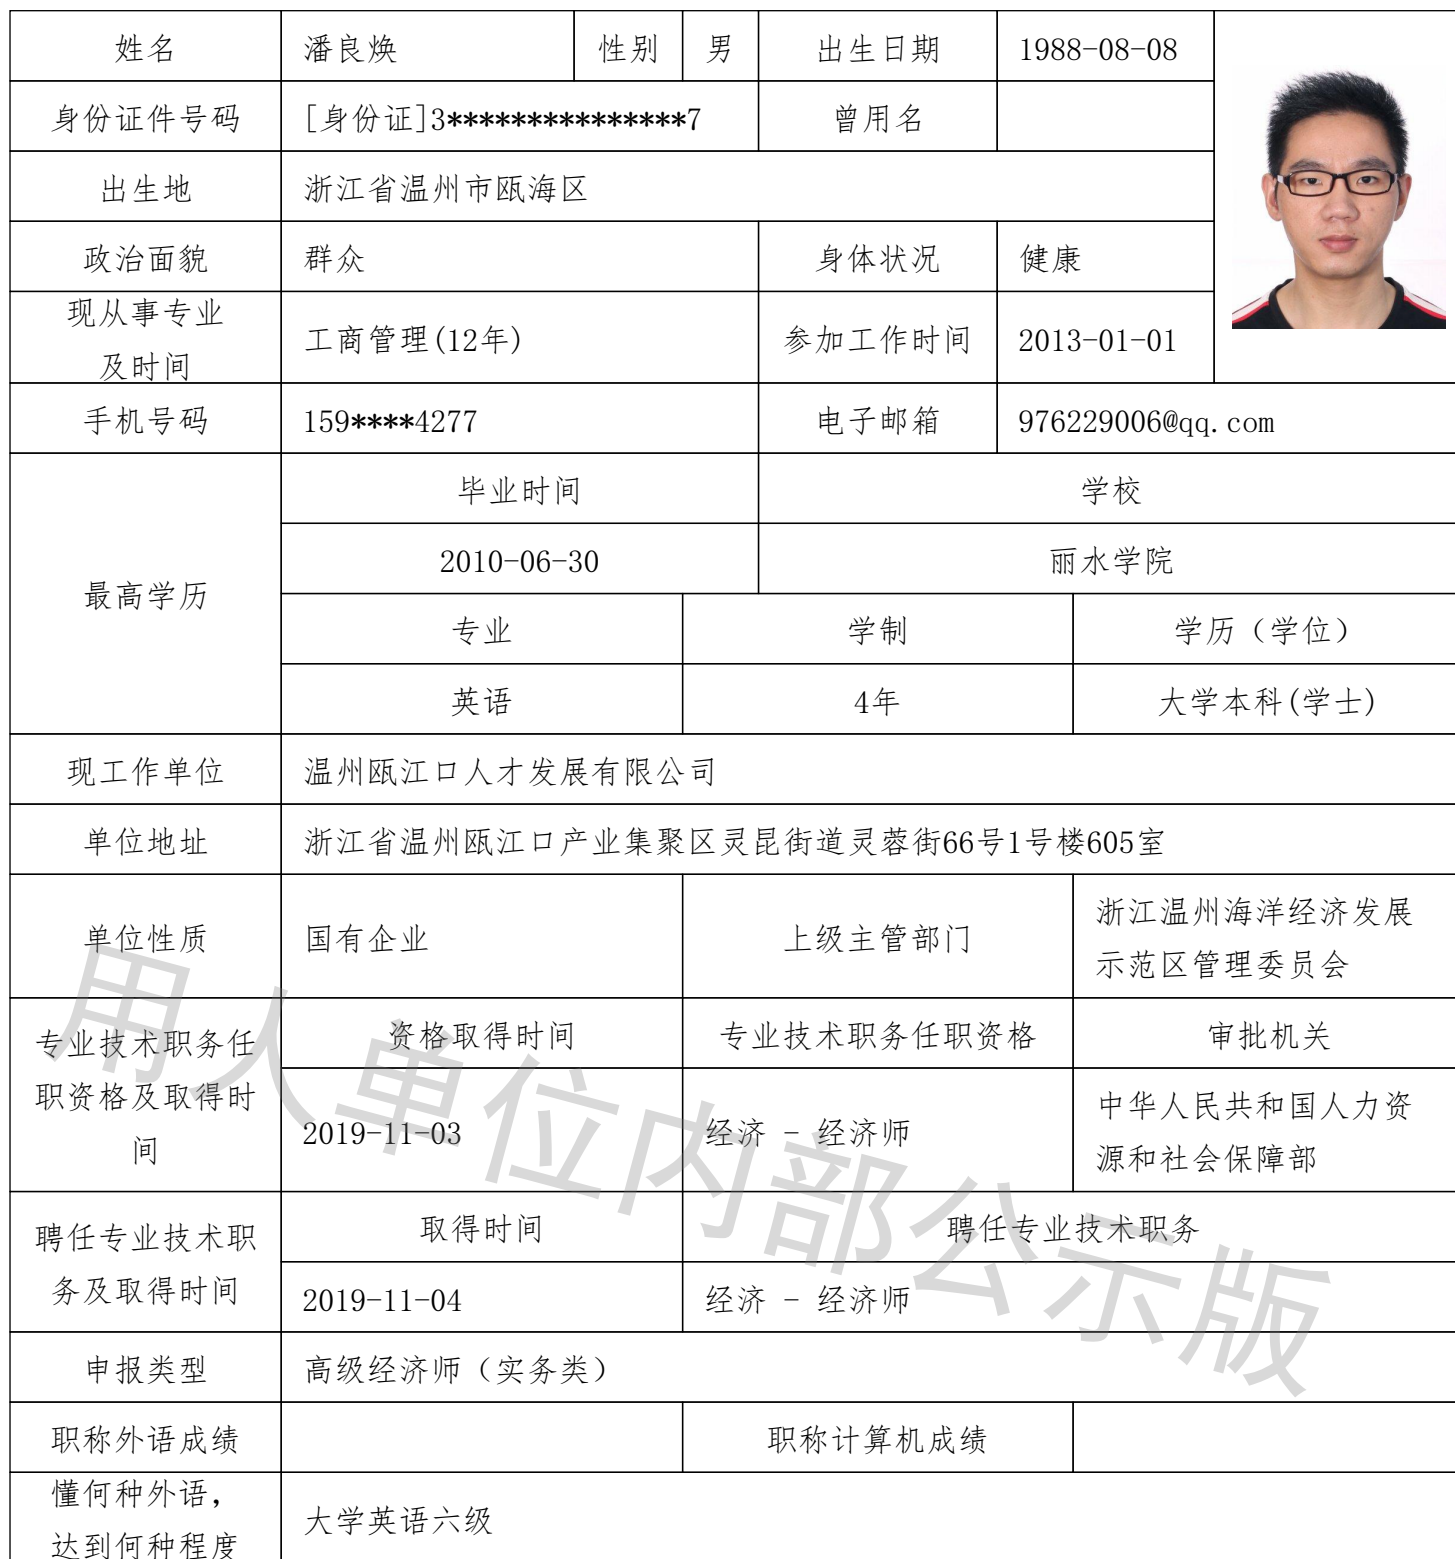 姓名 潘良焕 性别 男 出生日期 1988-08-08
身份证件号码 [身份证]3***************7 曾用名
出生地 浙江省温州市瓯海区
政治面貌 群众 身体状况 健康
现从事专业
及时间
工商管理(12年) 参加工作时间 2013-01-01
手机号码 159****4277 电子邮箱 976229006@qq.com
最高学历
毕业时间 学校
2010-06-30 丽水学院
专业 学制 学历（学位）
英语 4年 大学本科(学士)
现工作单位 温州瓯江口人才发展有限公司
单位地址 浙江省温州瓯江口产业集聚区灵昆街道灵蓉街66号1号楼605室
单位性质 国有企业 上级主管部门
浙江温州海洋经济发展
示范区管理委员会
专业技术职务任
职资格及取得时
间
资格取得时间 专业技术职务任职资格 审批机关
2019-11-03 经济 - 经济师
中华人民共和国人力资
源和社会保障部
聘任专业技术职
务及取得时间
取得时间 聘任专业技术职务
2019-11-04 经济 - 经济师
申报类型 高级经济师（实务类）
职称外语成绩 职称计算机成绩
懂何种外语，
达到何种程度
大学英语六级
用人单位内部公示版